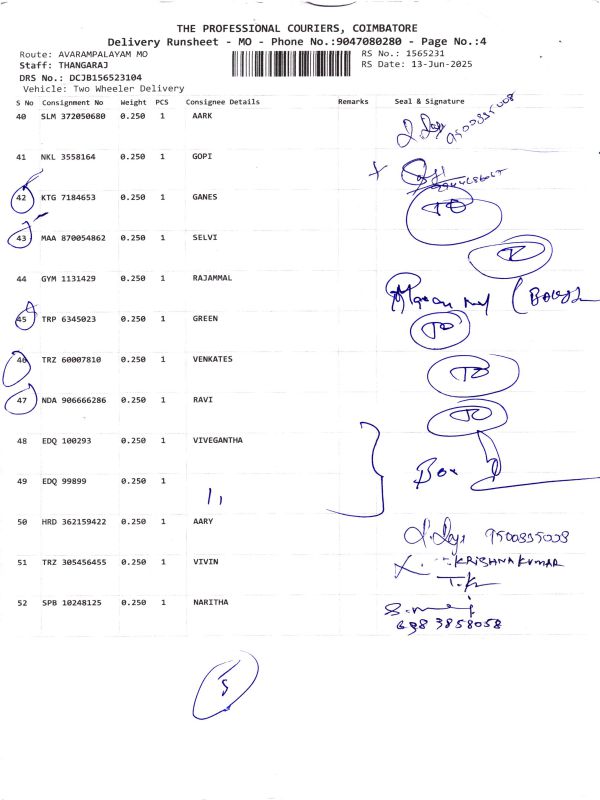 THE PROFESSIONAL COURIERS, COIMBATORE
Delivery Runsheet - MO - Phone No.:9047080280 - Page No.:4
Route: AVARAMPALAYAM MO RS No.: 1565231
Staff: THANGARAJ RS Date: 13-Jun-2025
DRS No.: DCJB156523104
Vehicle: Two Wheeler Delivery
S No Consignment No Weight PCS Consignee Details Remarks Seal & Signature
40 SLM 372050680 0.250 1 AARK 9500895008
41 NKL 3558164 0.250 1 GOPI
42 KTG 7184653 0.250 1 GANES
43 MAA 870054862 0.250 1 SELVI
44 GYM 1131429 0.250 1 RAJAMMAL
45 TRP 6345023 0.250 1 GREEN
46 TRZ 60007810 0.250 1 VENKATES
47 NDA 906666286 0.250 1 RAVI
48 EDQ 100293 0.250 1 VIVEGANTHA
49 EDQ 99899 0.250 1 Box
50 HRD 362159422 0.250 1 AARY 9500895008
51 TRZ 305456455 0.250 1 VIVIN KRISHNAKUMAR
52 SPB 10248125 0.250 1 NARITHA
6983858058
5